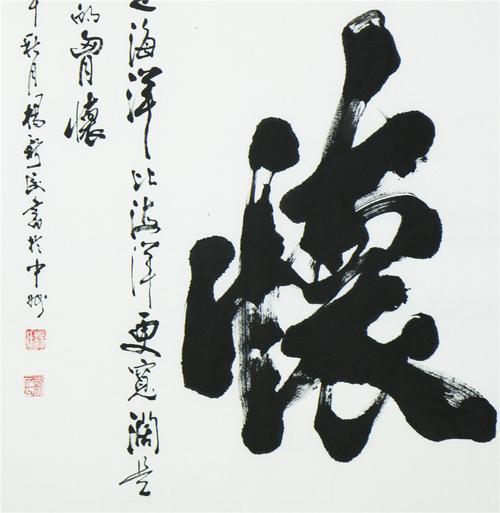 懷
海洋比海洋更寬闊是
的胷懷
秋月楊新民書於中州